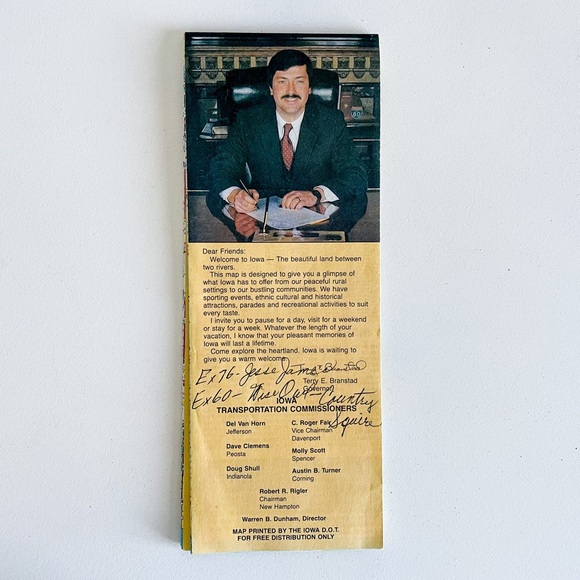 Dear Friends:
Welcome to Iowa — The beautiful land between
two rivers.
This map is designed to give you a glimpse of
what Iowa has to offer from our peaceful rural
settings to our bustling communities. We have
sporting events, ethnic cultural and historical
attractions, parades and recreational activities to suit
every taste.
I invite you to pause for a day, visit for a weekend
or stay for a week. Whatever the length of your
vacation, I know that your pleasant memories of
Iowa will last a lifetime.
Come explore the heartland. Iowa is waiting to
give you a warm welcome
Ex 76 - Jesse James
Terry E. Branstad
Governor
Ex 60 - Wise Owl - Country
Squire
IOWA
TRANSPORTATION COMMISSIONERS
Del Van Horn
Jefferson
C. Roger Fair
Vice Chairman
Davenport
Dave Clemens
Peosta
Molly Scott
Spencer
Doug Shull
Indianola
Austin B. Turner
Corning
Robert R. Rigler
Chairman
New Hampton
Warren B. Dunham, Director
MAP PRINTED BY THE IOWA D.O.T.
FOR FREE DISTRIBUTION ONLY